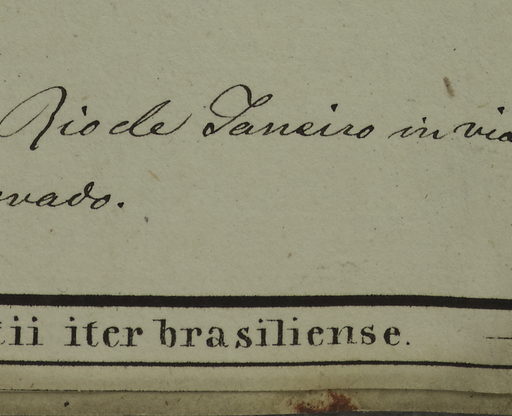 Rio de Janeiro in via
vado.
tii iter brasiliense.